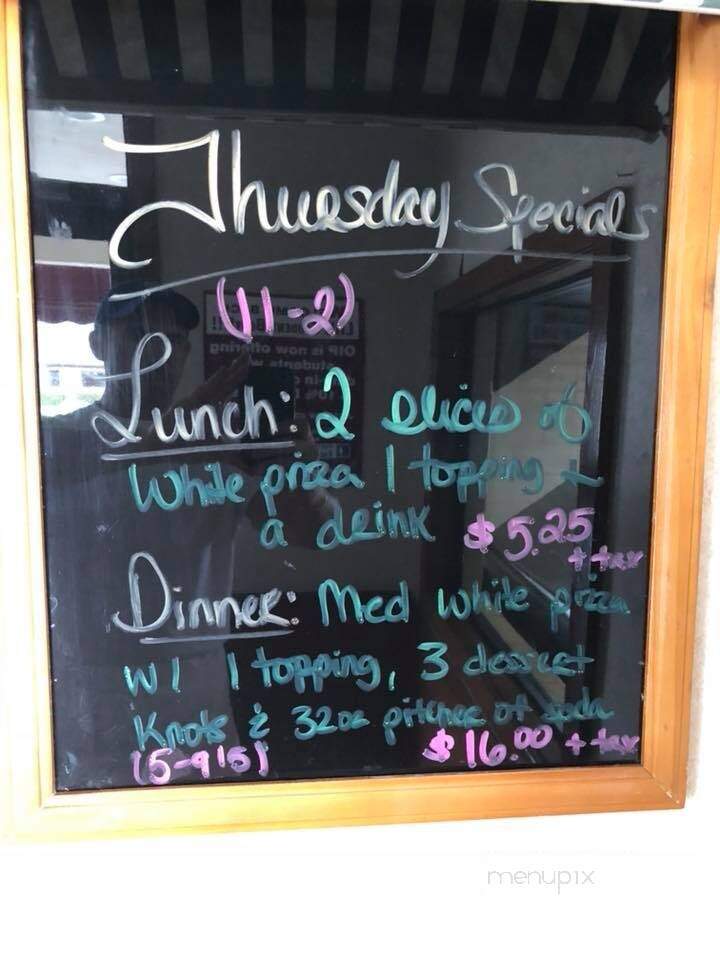 Thursday Specials
(11-2)
Lunch: 2 slices of
White pizza 1 topping +
a drink $5.25
+ tax
Dinner: Med white pizza
w/ 1 topping, 3 dessert
Knots & 32oz pitcher of soda
(5-9 15) $16.00 + tax
OIP is now offering
students
menupix